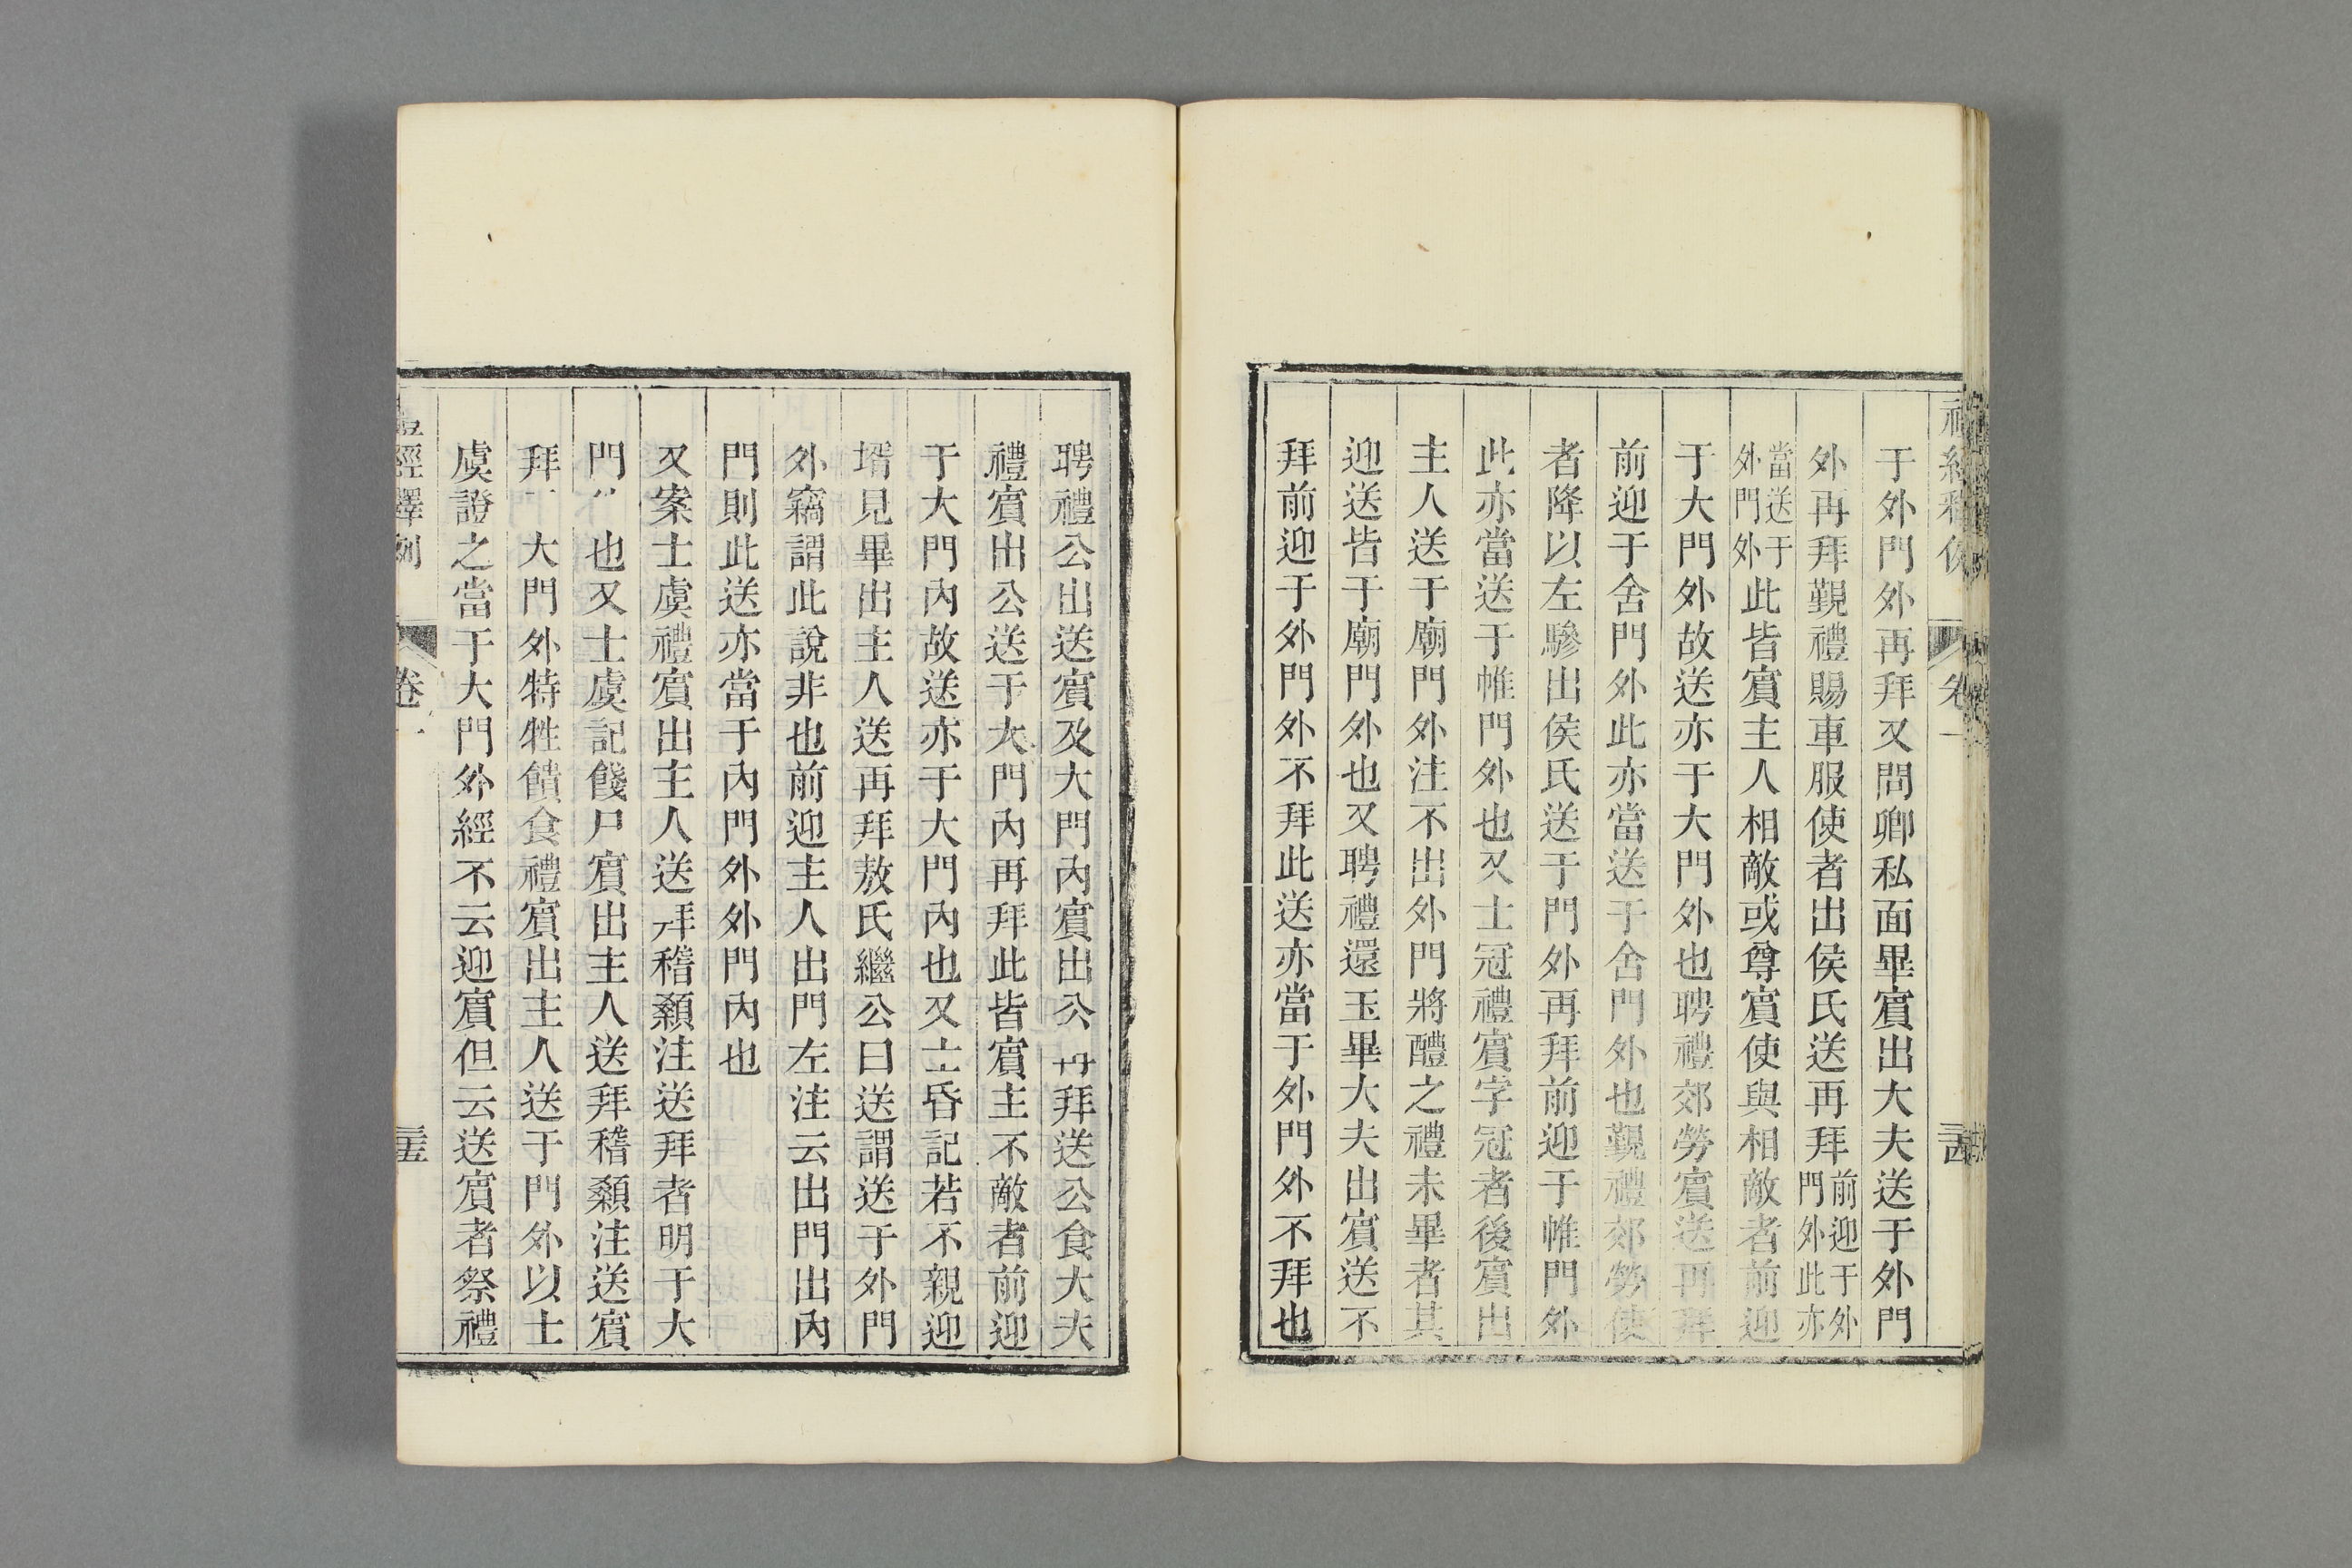 于外門外再拜又問卿私面畢賓出大夫送于外門
外再拜覲禮賜車服使者出侯氏送再拜前迎于外門外此亦
當送于外門外此皆賓主人相敵或尊賓使與相敵者前迎
于大門外故送亦于大門外也聘禮郊勞賓送再拜
前迎于舍門外此亦當送于舍門外也覲禮郊勞使
者降以左驂出侯氏送于門外再拜前迎于帷門外
此亦當送于帷門外也又士冠禮賓字冠者後賓出
主人送于廟門外注不出外門將醴之禮未畢者其
迎送皆于廟門外也又聘禮還玉畢大夫出賓送不
拜前迎于外門外不拜此送亦當于外門外不拜也
聘禮公出送賓及大門內賓出公再拜送公食大夫
禮賓出公送于大門內再拜此皆賓主不敵者前迎
于大門內故送亦于大門內也又士昏記若不親迎
壻見畢出主人送再拜敖氏繼公曰送謂送于外門
外竊謂此說非也前迎主人出門左注云出門出內
門則此送亦當于內門外外門內也
又案士虞禮賓出主人送拜稽顙注送拜者明于大
門外也又士虞記餞尸賓出主人送拜稽顙注送賓
拜于大門外特牲饋食禮賓出主人送于門外以士
虞證之當于大門外經不云迎賓但云送賓者祭禮
禮經釋例
卷一
三五